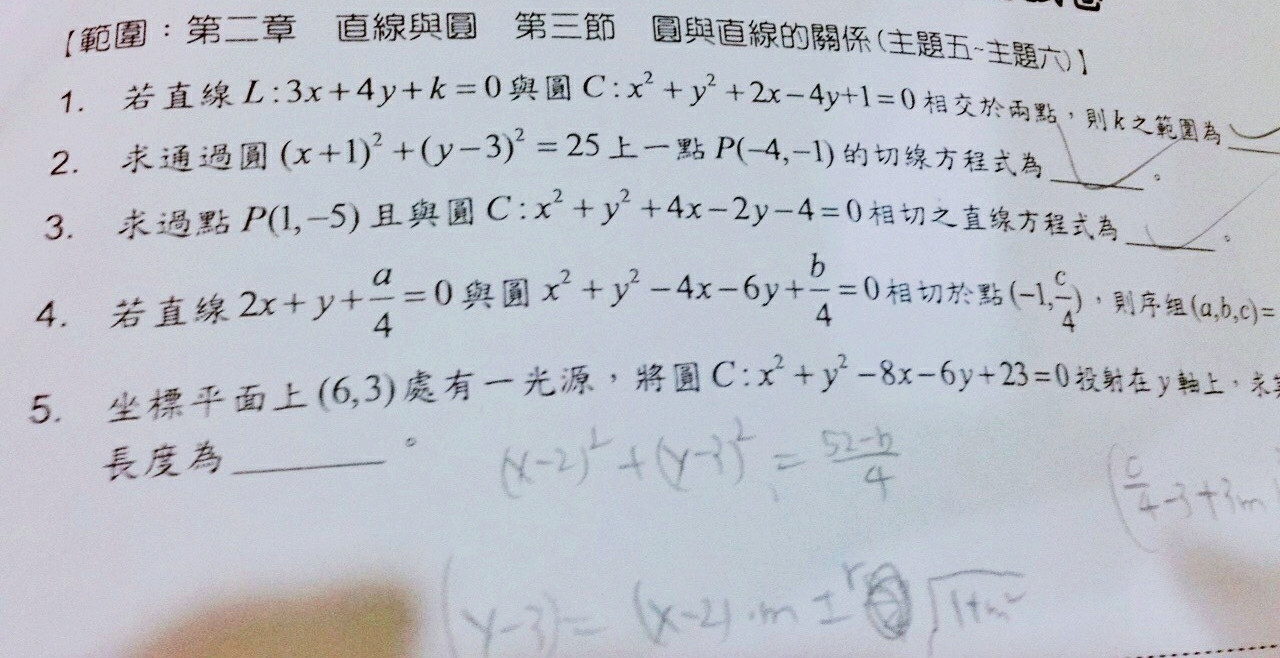 【範圍：第二章 直線與圓 第三節 圓與直線的關係(主題五~主題六)】
1. 若直線 L:3x+4y+k=0 與圓 C:x²+y²+2x-4y+1=0 相交於兩點，則 k 之範圍為____
2. 求通過圓 (x+1)²+(y-3)²=25 上一點 P(-4,-1) 的切線方程式為____。
3. 求過點 P(1,-5) 且與圓 C:x²+y²+4x-2y-4=0 相切之直線方程式為____。
4. 若直線 2x+y+a/4=0 與圓 x²+y²-4x-6y+b/4=0 相切於點 (-1,c/4)，則序組(a,b,c)=
5. 坐標平面上 (6,3) 處有一光源，將圓 C:x²+y²-8x-6y+23=0 投射在 y 軸上，求
長度為____。
(x-2)²+(y-3)²=52-b/4
(c/4-3+3m
(y-3)=(x-2)·m±r√1+m²